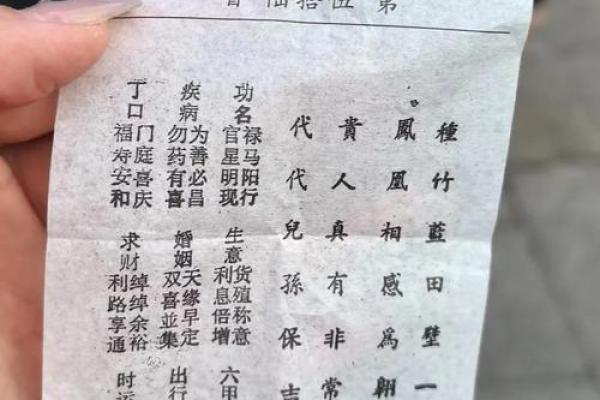 第伍拾陆首
種竹藍田壁一
鳳凰相感爲
貴人真有非常
代代兒孫保吉
功名
禄马阳行
官星明现
生意
货殖称意
利息倍增
六甲
疾病
为善必昌
勿药有喜
婚姻
天缘早定
双喜並集
出行
丁口
门庭喜庆
福寿安和
求财
绰绰余裕
利路享通
时运